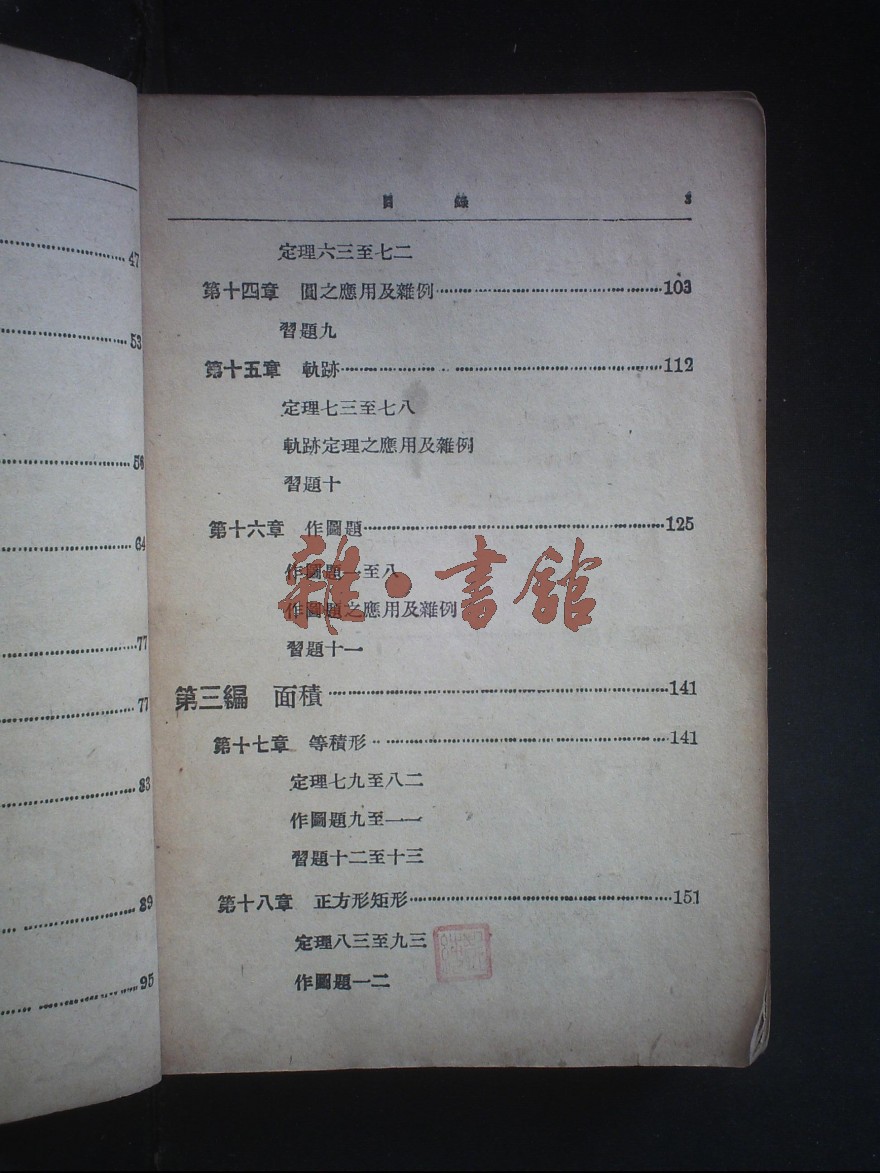 目錄 3
定理六三至七二
第十四章 圓之應用及雜例 103
習題九
第十五章 軌跡 112
定理七三至七八
軌跡定理之應用及雜例
習題十
第十六章 作圖題 125
作圖題一至八
作圖題之應用及雜例
習題十一
第三編 面積 141
第十七章 等積形 141
定理七九至八二
作圖題九至一一
習題十二至十三
第十八章 正方形矩形 151
定理八三至九三
作圖題一二
雜·書館
47
53
58
64
77
77
83
89
95